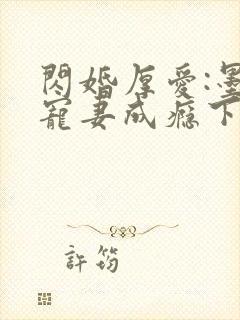 閃婚厚愛:墨
寵妻成癮下
許筠